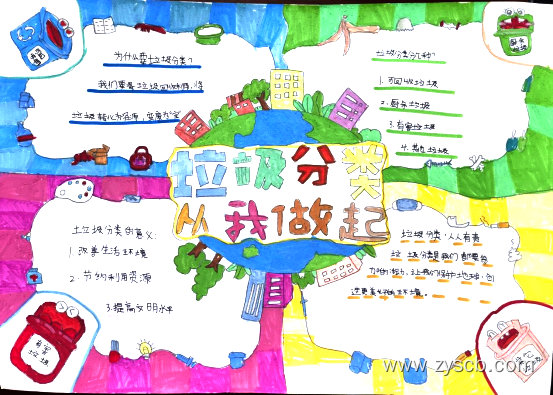 为什么要垃圾分类?
我们要将垃圾回收利用,将
垃圾转化为资源,变废为宝
垃圾分类分几种?
1.可回收垃圾
2.厨余垃圾
3.有害垃圾
4.其他垃圾
垃圾分类
从我做起
垃圾分类的意义:
1.改善生活环境
2.节约利用资源
3.提高文明水平
垃圾分类,人人有责
垃圾分类是我们都要
努力的,让我们保护地球,创
造更美好的环境。
有害
垃圾
www.zyscb.com